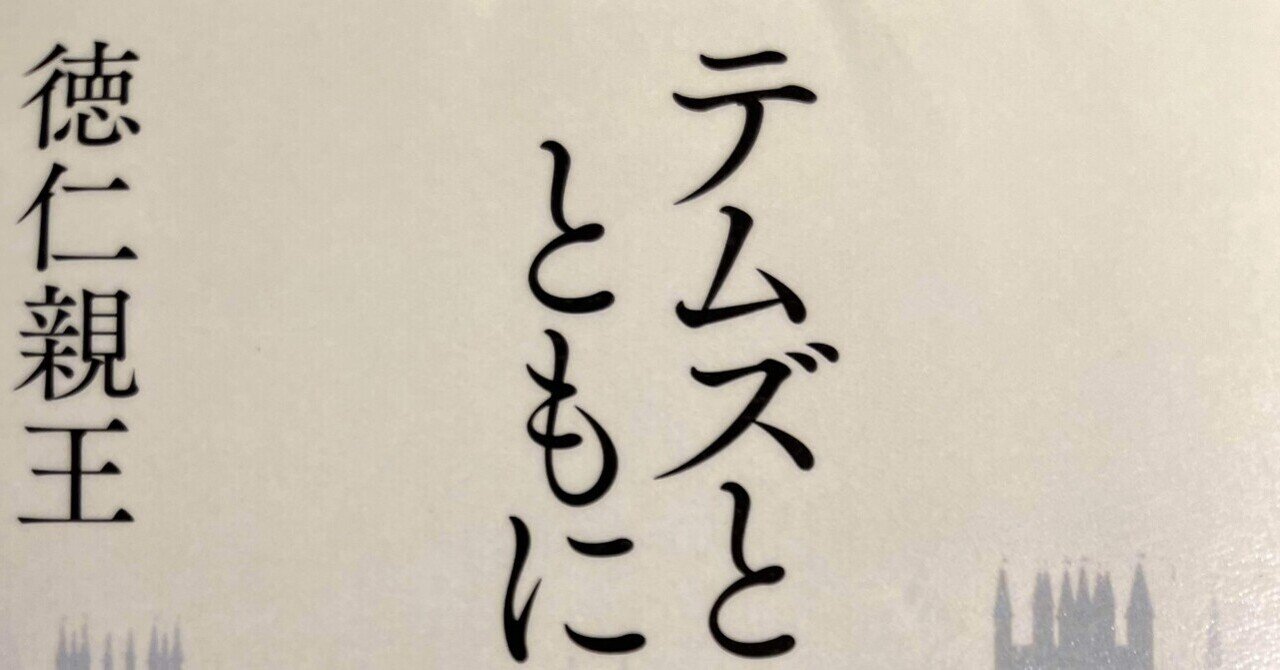 テムズと
ともに
徳仁親王